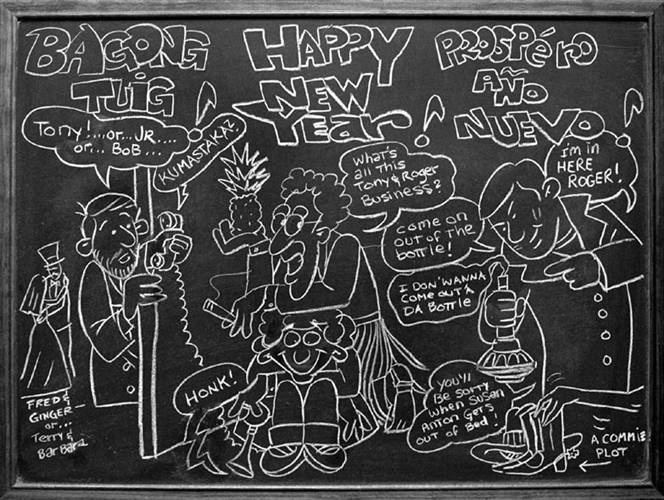 BAGONG
TUIG
HAPPY
NEW
YEAR!
PROSPéRO
AÑO
NUEVO!
Tony!...or...JR....
or... BoB...
KUMASTAKA?
What's
all This
Tony & Roger
Business?
come on
out of the
bottle!
I'm in
HERE
ROGER!
I DON'WANNA
COME OUT'A
DA BOTTLE
HONK!
YOU'LL
Be sorry
when Susan
Anton Gets
out of Bed!
FRED &
GINGER
or...
Terry &
BarBara
A COMMIE
PLOT